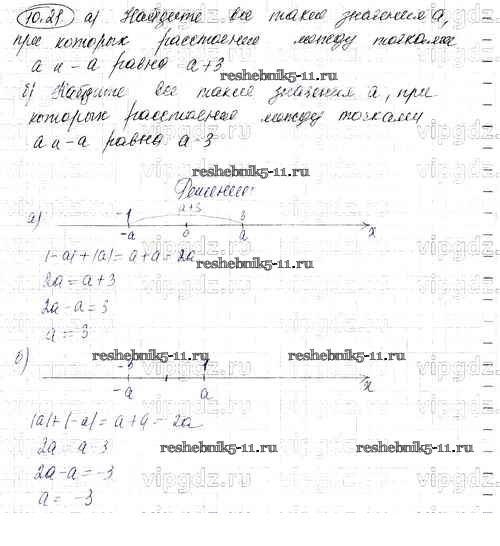 10.21 а) Найдите все такие значения а,
при которых расстояние между точками
а и -а равно а+3
reshebnik5-11.ru
б) Найдите все такие значения а, при
которых расстояние между точками
а и -а равно а-3
reshebnik5-11.ru
Решение:
а) -1 а+3 3
-а 0 а х
|-а|+|а|= а+а = 2а
reshebnik5-11.ru
2а = а+3
2а-а = 3
а = 3
б) reshebnik5-11.ru reshebnik5-11.ru
-3 1
-а а х
|а|+|-а| = а+а = 2а
2а = а-3
reshebnik5-11.ru reshebnik5-11.ru
2а-а = -3
а = -3
vipgdz.ru